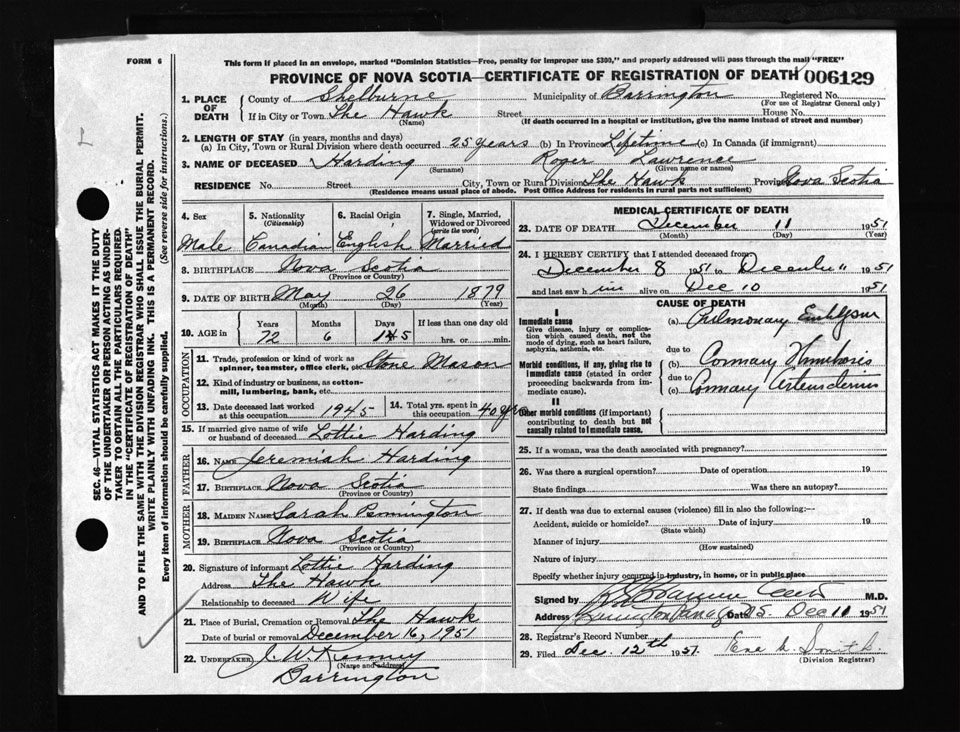 FORM 6
This form if placed in an envelope, marked "Dominion Statistics—Free, penalty for improper use $300," and properly addressed will pass through the mail "FREE"
PROVINCE OF NOVA SCOTIA—CERTIFICATE OF REGISTRATION OF DEATH 006129
1. PLACE OF DEATH County of Shelburne Municipality of Barrington Registered No.
(For use of Registrar General only)
If in City or Town The Hawk Street House No.
(Name) (If death occurred in a hospital or institution, give the name instead of street and number)
2. LENGTH OF STAY (in years, months and days)
(a) In City, Town or Rural Division where death occurred 25 years (b) In Province Lifetime (c) In Canada (if immigrant)
3. NAME OF DECEASED Harding Roger Lawrence
(Surname) (Given name or names)
RESIDENCE No. Street City, Town or Rural Division The Hawk Province Nova Scotia
(Residence means usual place of abode. Post Office Address for residents in rural parts not sufficient)
4. Sex 5. Nationality (Citizenship) 6. Racial Origin 7. Single, Married, Widowed or Divorced (write the word)
Male Canadian English Married
8. BIRTHPLACE Nova Scotia
(Province or Country)
9. DATE OF BIRTH May 26 1879
(Month) (Day) (Year)
10. AGE in Years Months Days If less than one day old
72 6 hrs. or min.
OCCUPATION
11. Trade, profession or kind of work as spinner, teamster, office clerk, etc. Stone Mason
12. Kind of industry or business, as cotton-mill, lumbering, bank, etc.
13. Date deceased last worked at this occupation 1945 14. Total yrs. spent in this occupation 40 yrs
15. If married give name of wife or husband of deceased Lottie Harding
FATHER
16. NAME Jeremiah Harding
17. BIRTHPLACE Nova Scotia
(Province or Country)
MOTHER
18. MAIDEN NAME Sarah Pennington
19. BIRTHPLACE Nova Scotia
(Province or Country)
20. Signature of informant Lottie Harding
Address The Hawk
Relationship to deceased Wife
21. Place of Burial, Cremation or Removal The Hawk
Date of burial or removal December 16, 1951
22. UNDERTAKER J. W. Kenney
(Name and address)
Barrington
MEDICAL CERTIFICATE OF DEATH
23. DATE OF DEATH December 11 1951
(Month) (Day) (Year)
24. I HEREBY CERTIFY that I attended deceased from:
December 8 1951 to December 11 1951
and last saw him alive on Dec 10 1951
CAUSE OF DEATH
I
Immediate cause
Give disease, injury or complication which caused death, not the mode of dying, such as heart failure, asphyxia, asthenia, etc.
(a) Pulmonary
due to
Morbid conditions, if any, giving rise to immediate cause (stated in order proceeding backwards from immediate cause).
(b) Coronary
due to
(c) Coronary
II
Other morbid conditions (if important) contributing to death but not causally related to immediate cause.
25. If a woman, was the death associated with pregnancy?
26. Was there a surgical operation? Date of operation 19
State findings Was there an autopsy?
27. If death was due to external causes (violence) fill in also the following:—
Accident, suicide or homicide? Date of injury 19
(State which)
Manner of injury
(How sustained)
Nature of injury
Specify whether injury occurred in industry, in home, or in public place
Signed by M.D.
Address Barrington Date Dec 11 1951
28. Registrar's Record Number
29. Filed Dec. 12th 1951 Smith
(Division Registrar)
SEC. 46—VITAL STATISTICS ACT MAKES IT THE DUTY
OF THE UNDERTAKER OR PERSON ACTING AS UNDERTAKER TO OBTAIN ALL THE PARTICULARS REQUIRED
IN THE "CERTIFICATE OF REGISTRATION OF DEATH"
AND TO FILE THE SAME WITH THE DIVISION REGISTRAR WHO SHALL ISSUE THE BURIAL PERMIT.
WRITE PLAINLY WITH UNFADING INK. THIS IS A PERMANENT RECORD.
Every item of information should be carefully supplied. (See reverse side for instructions.)